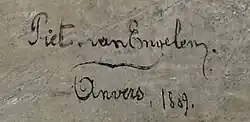 Piet. van Engelen.
Anvers, 1889.